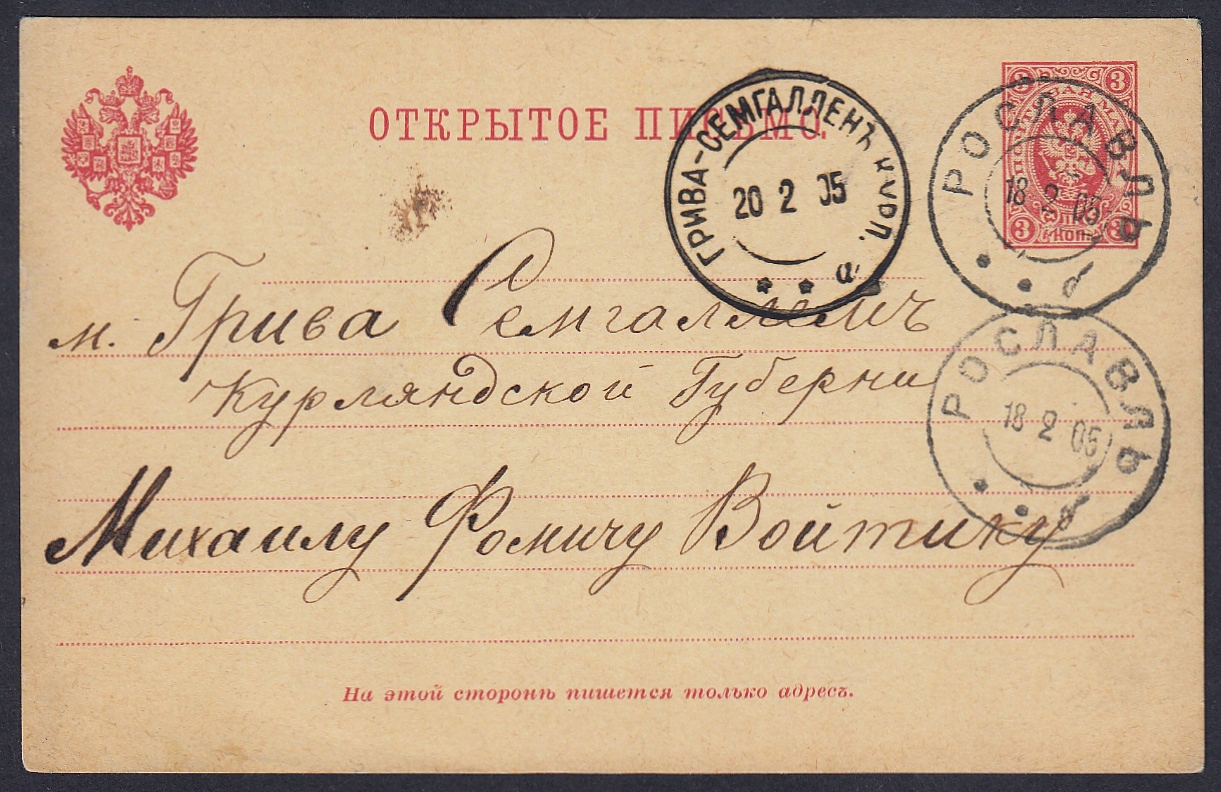 ОТКРЫТОЕ ПИСЬМО.
3 3
3 КОП. 3
РОСЛАВЛЬ
18 2 05
б
ГРИВА-СЕМГАЛЛЕНЪ КУРЛ.
20 2 05
а
м. Грива Семгалленъ
Курляндской Губерни
РОСЛАВЛЬ
18 2 05
б
Михаилу Фомичу Войтику
На этой сторонѣ пишется только адресъ.